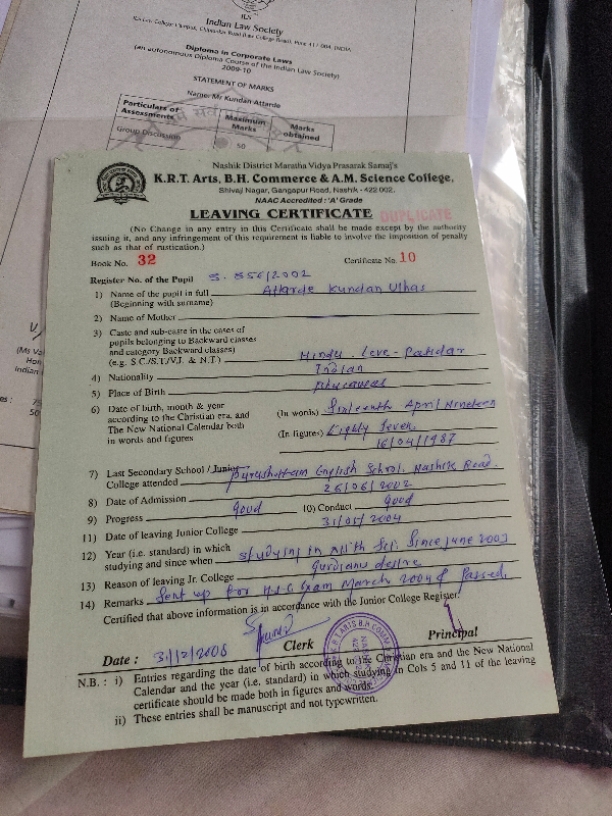 ILS
Indian Law Society
Diploma in Corporate Laws
(an autonomous Diploma Course of the Indian Law Society)
2009-10
STATEMENT OF MARKS
Name: Mr Kundan Attarde
Particulars of Assessments Maximum Marks Marks obtained
Group Discussion 50
Nashik District Maratha Vidya Prasarak Samaj's
K.R.T. Arts, B.H. Commerce & A.M. Science College,
Shivaji Nagar, Gangapur Road, Nashik - 422 002.
NAAC Accredited : 'A' Grade
LEAVING CERTIFICATE DUPLICATE
(No Change in any entry in this Certificate shall be made except by the authority
issuing it, and any infringement of this requirement is liable to involve the imposition of penalty
such as that of rustication.)
Book No. 32 Certificate No. 10
Register No. of the Pupil S. 856/2002
1) Name of the pupil in full Attarde Kundan Ulhas
(Beginning with surname)
2) Name of Mother
3) Caste and sub-caste in the cases of
pupils belonging to Backward classes
and category Backward classes)
(e.g. S.C./S.T./V.J. & N.T.) Hindu. Leve-Patidar
4) Nationality Indian
5) Place of Birth
6) Date of birth, month & year
according to the Christian era, and
The New National Calendar both
in words and figures
(In words) Sixteenth April Nineteen
(In figures) Eighty Seven
16/04/1987
7) Last Secondary School / Junior
College attended Purushottam English School. Nashik Road.
8) Date of Admission 26/06/2002
9) Progress Good 10) Conduct Good
11) Date of leaving Junior College 31/05/2004
12) Year (i.e. standard) in which
studying and since when studying in XIIth Sci. Since June 2003
13) Reason of leaving Jr. College Gurdians desire
14) Remarks Sent up for H.S.C Exam March 2004 & Passed.
Certified that above information is in accordance with the Junior College Register.
Date : 31/12/2008 Clerk Principal
N.B. : i) Entries regarding the date of birth according to the Christian era and the New National
Calendar and the year (i.e. standard) in which studying in Cols 5 and 11 of the leaving
certificate should be made both in figures and words.
ii) These entries shall be manuscript and not typewritten.